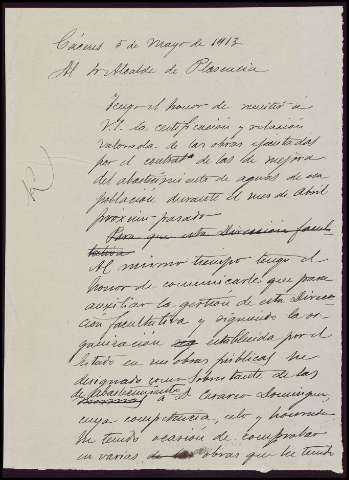 Cáceres 5 de Mayo de 1913
Al Sr Alcalde de Plasencia
Tengo el honor de remitir á
V.S. la certificación y relación
valorada de las obras ejecutadas
por el contratª de las de mejora
del abastecimiento de aguas de esa
población durante el mes de Abril
proximo pasado
Para que esta Dirección facul-
tativa
Al mismo tiempo tengo el
honor de comunicarle que para
auxiliar la gestión de esta Direc-
ción facultativa y siguiendo la or-
ganización establecida por el
Estado en sus obras públicas he
designado como Sobrestante de las
de abastecimiento
á D. Cesareo Dominguez,
cuya competencia, celo y honradez
he tenido ocasión de comprobar
en varias obras que he tenido